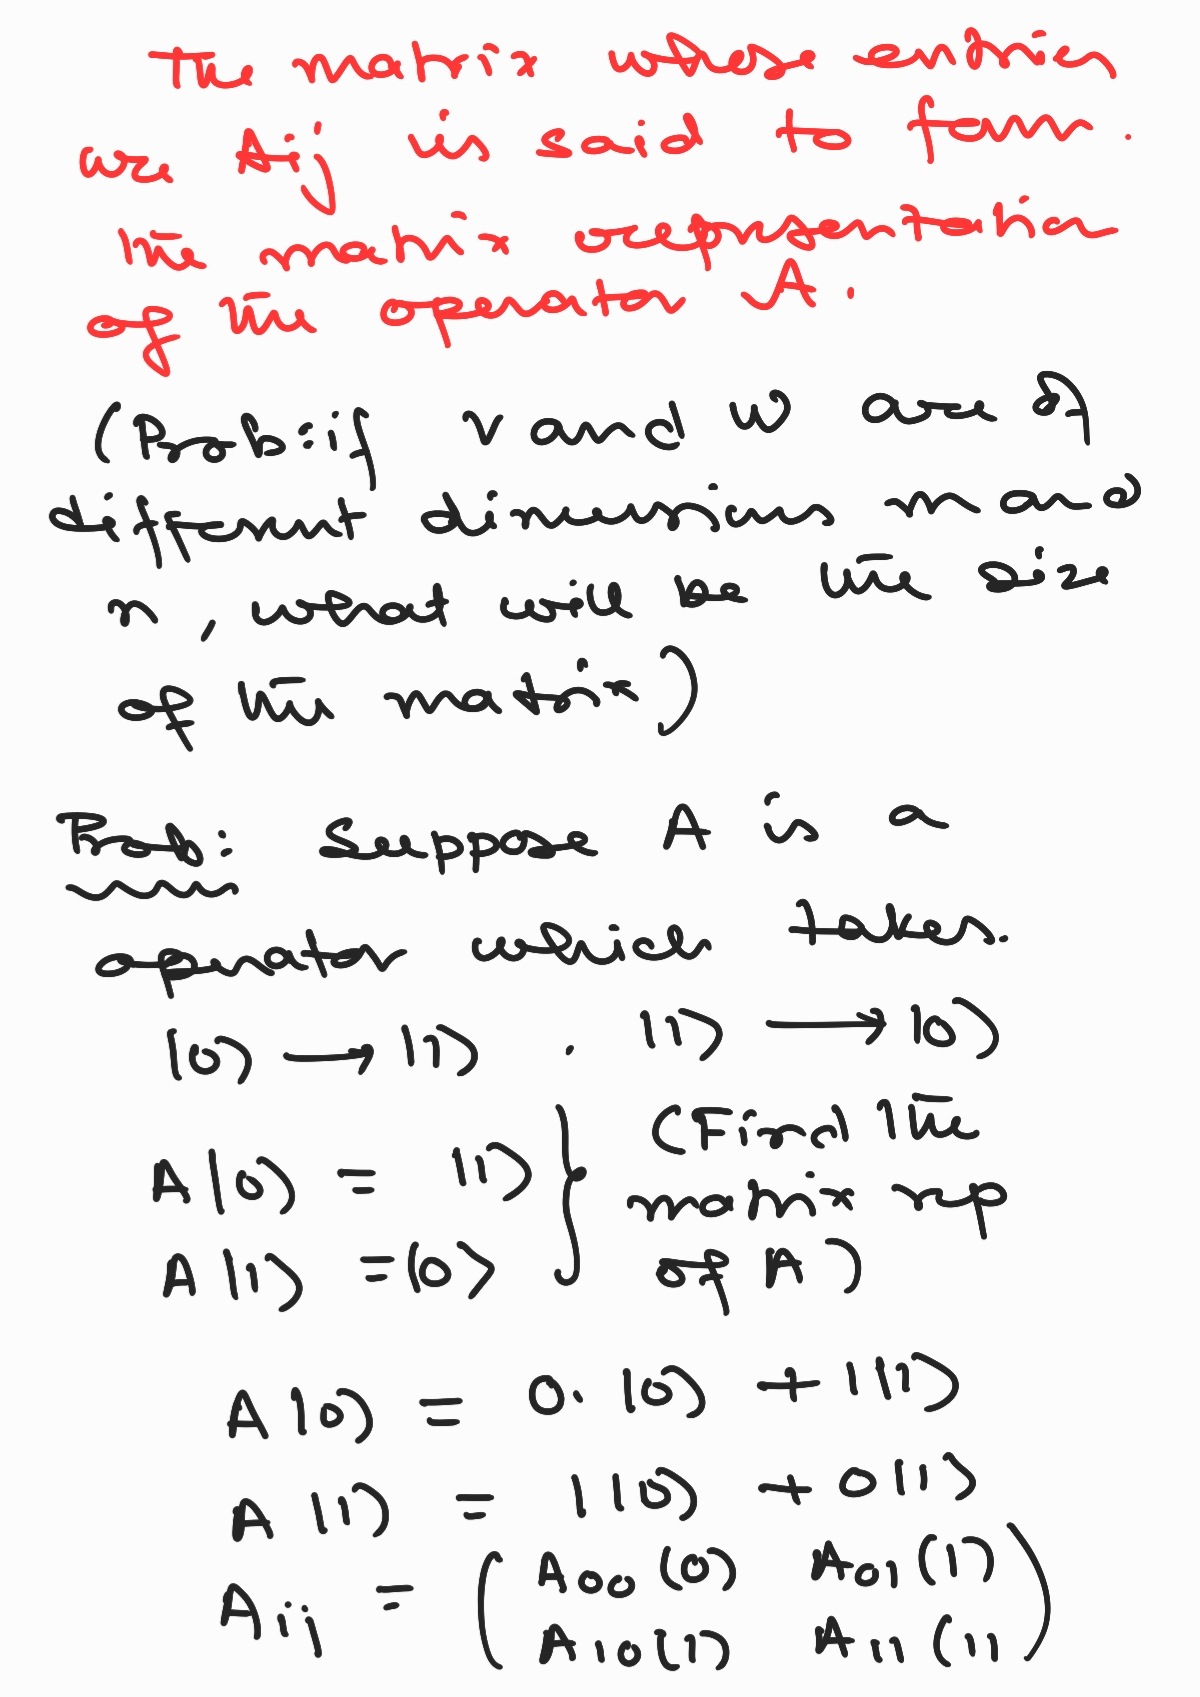 The matrix whose entries
are Aij is said to form.
the matrix representation
of the operator A.
(Prob: if V and W are of
different dimensions m and
n, what will be the size
of the matrix)
Prob: Suppose A is a
operator which takes.
|0⟩ → |1⟩ . |1⟩ → |0⟩
A|0⟩ = |1⟩ } (Find the
matrix rep
A|1⟩ = |0⟩ of A)
A|0⟩ = 0.|0⟩ + 1|1⟩
A|1⟩ = 1|0⟩ + 0|1⟩
Aij = ( A00(0) A01(1)
A10(1) A11(1 )